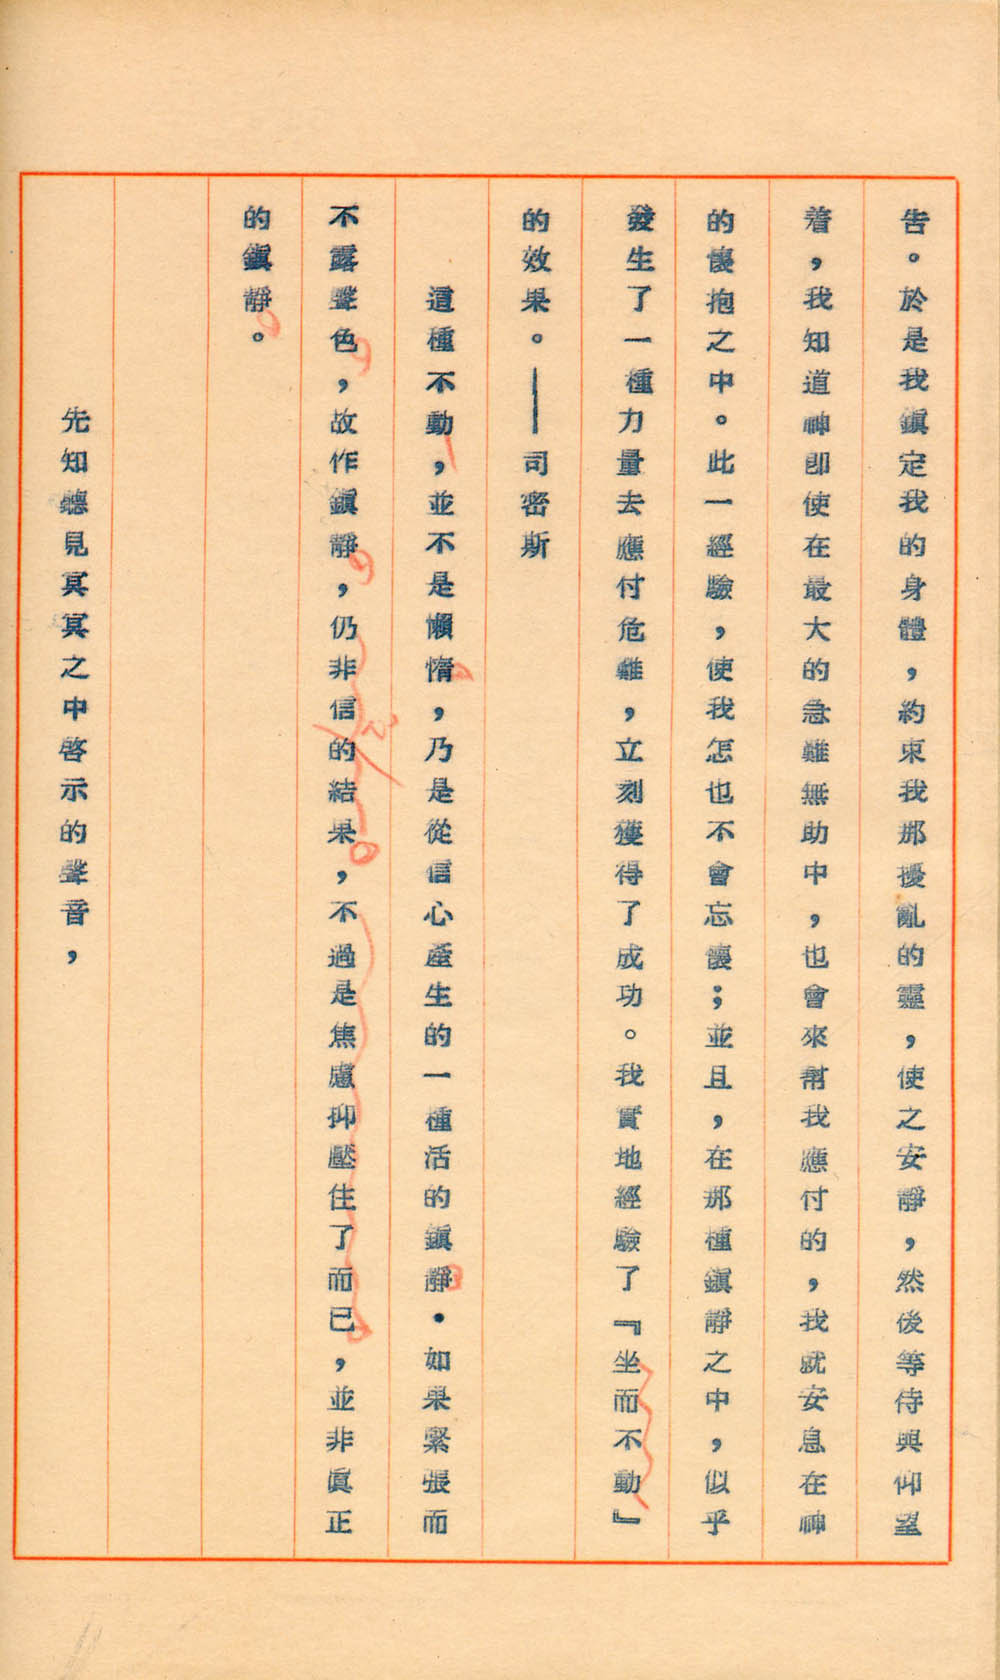 告。於是我鎭定我的身體，約束我那擾亂的靈，使之安靜，然後等待與仰望
着，我知道神卽使在最大的急難無助中，也會來幫我應付的，我就安息在神
的懷抱之中。此一經驗，使我怎也不會忘懷；並且，在那種鎭靜之中，似乎
發生了一種力量去應付危難，立刻獲得了成功。我實地經驗了『坐而不動』
的效果。——司密斯
這種不動，並不是懶惰，乃是從信心產生的一種活的鎭靜．如果緊張而
不露聲色，故作鎭靜，仍非信的結果，不過是焦慮抑壓住了而已，並非眞正
的鎭靜。
先知聽見冥冥之中啓示的聲音，